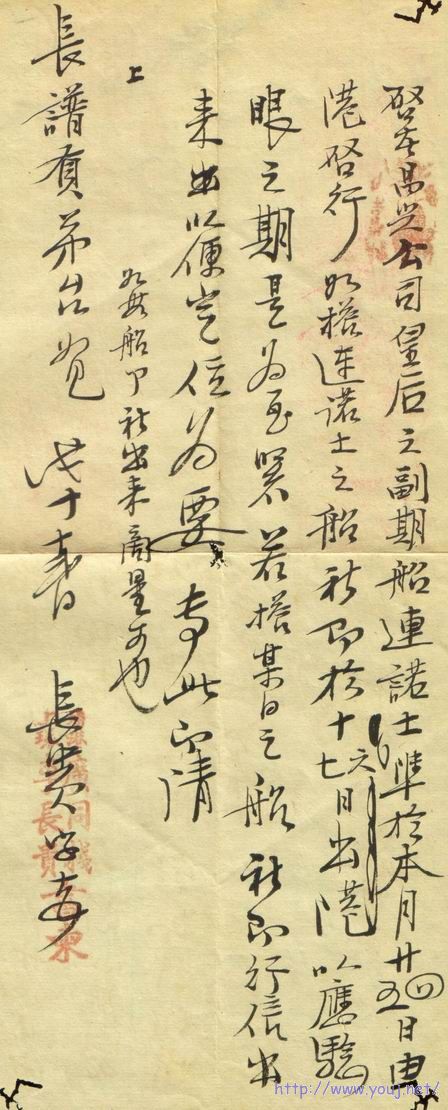 啓者昌興公司皇后之副期船連諾士準於本月廿五㊃日由
港啓行如搭連諾士之船祈即於十六七日出港以應驗
眼之期是為至要若搭某日之船祈即行信出
来出以便定位為要專此即請
如毎船〇祈出来商量可也
上
長譜賢弟台覽 戊十
長貴字
長貴
http://www.youj.net/